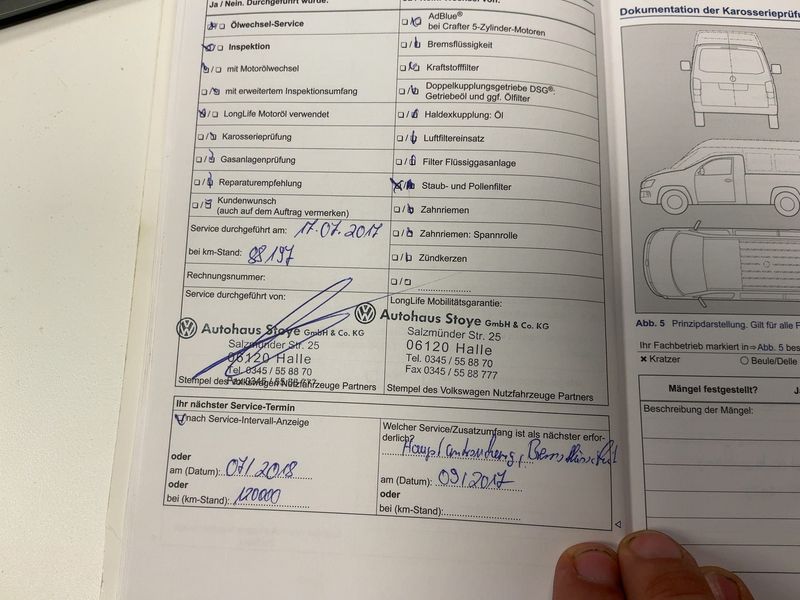 Ja / Nein. Durchgeführt wurde:
Ölwechsel-Service
Inspektion
mit Motorölwechsel
mit erweitertem Inspektionsumfang
LongLife Motoröl verwendet
Karosserieprüfung
Gasanlagenprüfung
Reparaturempfehlung
Kundenwunsch
(auch auf dem Auftrag vermerken)
Service durchgeführt am: 17.07.2017
bei km-Stand: 88197
Rechnungsnummer:
Service durchgeführt von:
Autohaus Stoye GmbH & Co. KG
Salzmünder Str. 25
06120 Halle
Tel. 0345 / 55 88 70
Fax 0345 / 55 88 777
Stempel des Volkswagen Nutzfahrzeuge Partners
AdBlue®
bei Crafter 5-Zylinder-Motoren
Bremsflüssigkeit
Kraftstofffilter
Doppelkupplungsgetriebe DSG®:
Getriebeöl und ggf. Ölfilter
Haldexkupplung: Öl
Luftfiltereinsatz
Filter Flüssiggasanlage
Staub- und Pollenfilter
Zahnriemen
Zahnriemen: Spannrolle
Zündkerzen
LongLife Mobilitätsgarantie:
Autohaus Stoye GmbH & Co. KG
Salzmünder Str. 25
06120 Halle
Tel. 0345 / 55 88 70
Fax 0345 / 55 88 777
Stempel des Volkswagen Nutzfahrzeuge Partners
Ihr nächster Service-Termin
nach Service-Intervall-Anzeige
oder
am (Datum): 07/2018
oder
bei (km-Stand): 120000
Welcher Service/Zusatzumfang ist als nächster erfor-
derlich?
Hauptuntersuchung, Bremsflüssigkeit
am (Datum): 09/2017
oder
bei (km-Stand):
Dokumentation der Karosserieprüf
Abb. 5 Prinzipdarstellung. Gilt für alle F
Ihr Fachbetrieb markiert in ⇒ Abb. 5 bes
Kratzer
Beule/Delle
Mängel festgestellt?
Beschreibung der Mängel: